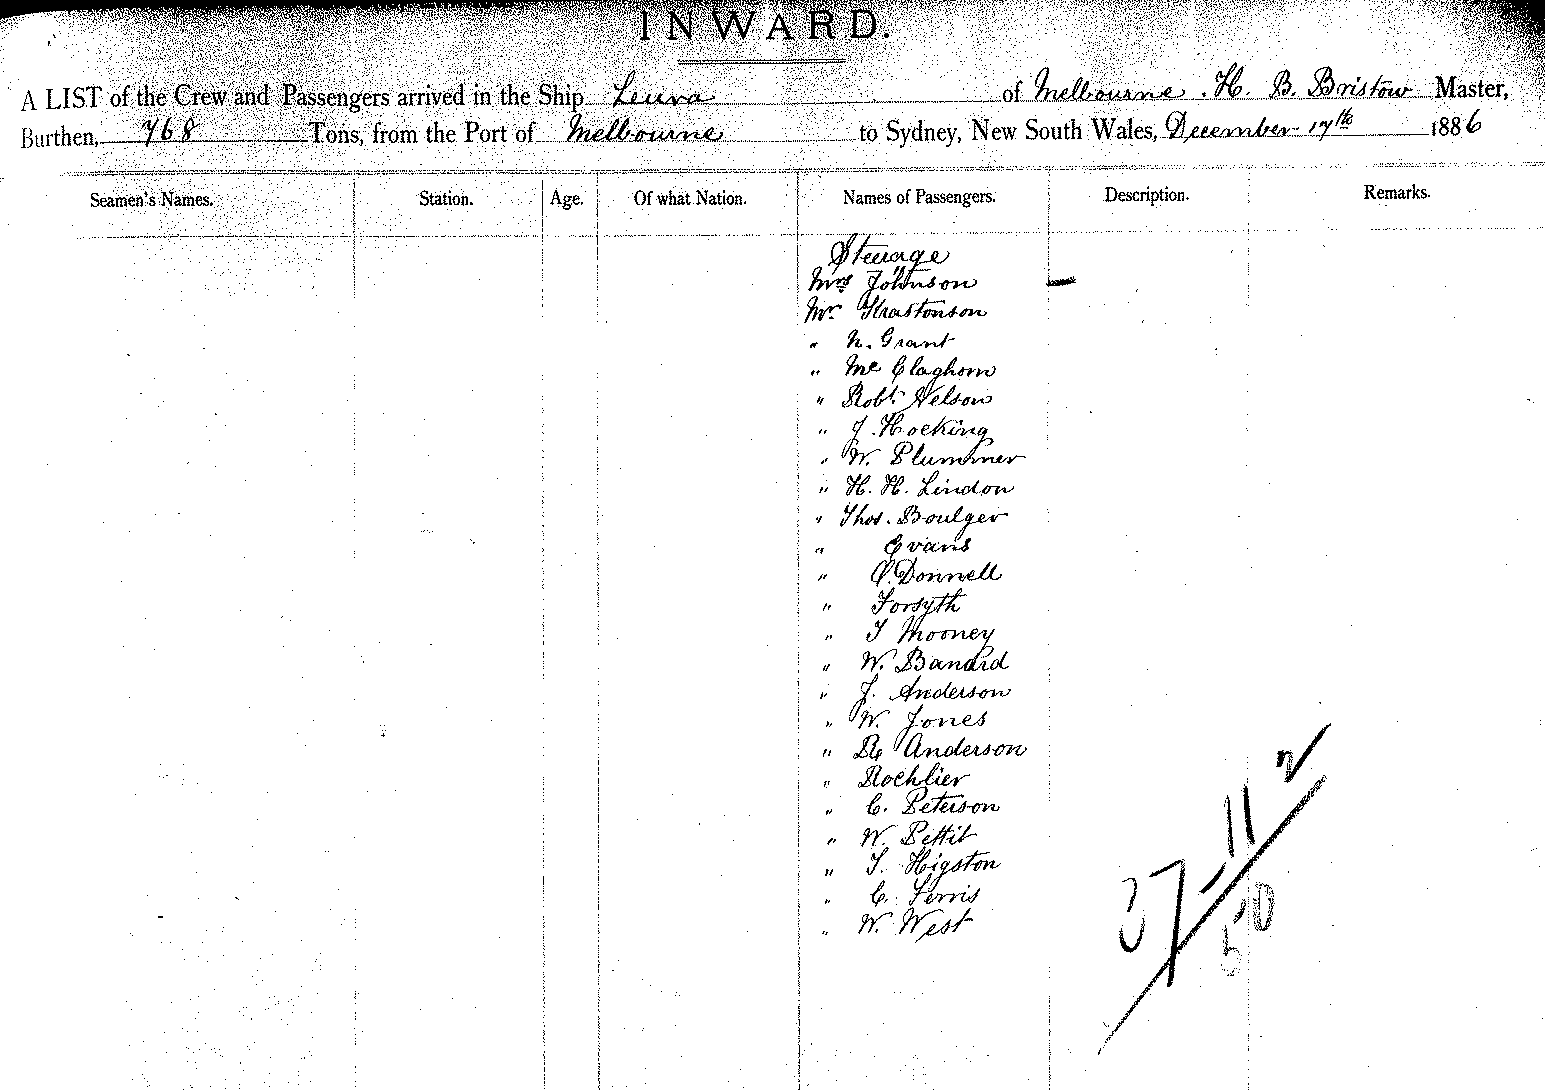 INWARD.
A LIST of the Crew and Passengers arrived in the Ship Leura of Melbourne. H. B. Bristow Master,
Burthen, 768 Tons, from the Port of Melbourne to Sydney, New South Wales, December 17th 1886
Seamen's Names. Station. Age. Of what Nation. Names of Passengers. Description. Remarks.
Steerage
Mrs Johnson —
Mr Krastonson
" N. Grant
" Mc Claghorn
" Robt. Nelson
" J. Hocking
" W. Plummer
" H. H. Lindon
" Thos. Boulger
" Evans
" O'Donnell
" Forsyth
" T Mooney
" W. Banard
" J. Anderson
" W. Jones
" Anderson
" Rochlier
" C. Peterson
" W. Pettit
" T. Higston
" C. Ferris
" W. West
37 - 11 2
50